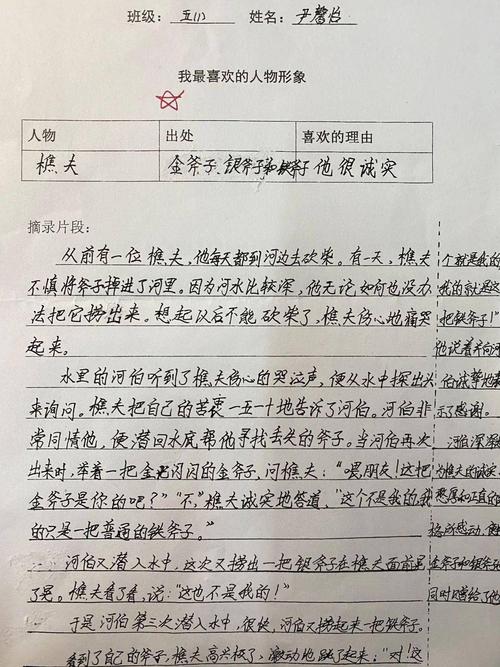 班级: 五(1) 姓名: 尹馨怡
我最喜欢的人物形象
人物 出处 喜欢的理由
樵夫 金斧子、银斧子和铁斧子 他很诚实
摘录片段:
从前有一位樵夫,他每天都到河边去砍柴。有一天,樵夫
不慎将斧子掉进了河里。因为河水比较深,他无论如何也没办
法把它捞出来。想起以后不能砍柴了,樵夫伤心地痛哭
起来。
水里的河伯听到了樵夫伤心的哭泣声,便从水中探出头
来询问。樵夫把自己的苦衷一五一十地告诉了河伯。河伯非
常同情他,便潜回水底帮他寻找丢失的斧子。当河伯再次
出来时,举着一把金光闪闪的金斧子,问樵夫:“喂,朋友!这把
金斧子是你的吧?”“不,”樵夫诚实地答道,“这个不是我的,我
的只是一把普通的铁斧子。”
河伯又潜入水中,这次又捞出一把银斧子在樵夫面前晃
了晃。樵夫看了看,说:“这也不是我的!”
于是河伯第三次潜入水中,很快,河伯又捞起来一把铁斧子。
看到了自己的斧子,樵夫高兴极了,激动地跳了起来:“对!这
个就是我的
我的就是这
把铁斧子!”
他说着并向河
伯诚挚地表
示了感谢。
河伯深深
为樵夫的诚实、
憨厚和正直的
格所感动,便
金斧子和银斧子
同时赠给了他